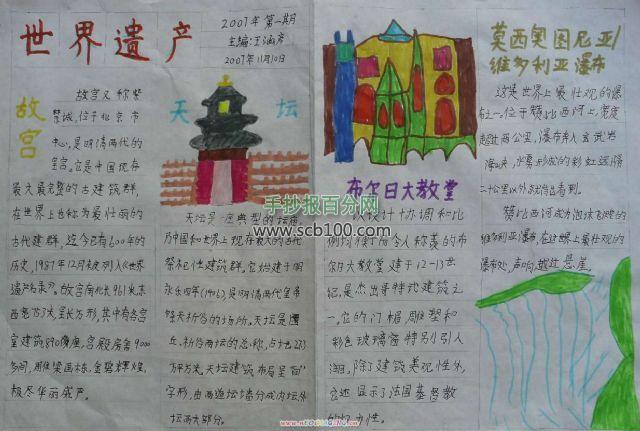 世界遗产
2007年第一期
2007年11月10日
故宫
故宫又称紫
禁城,位于北京市
中心,是明清两代的
皇宫。它是中国现存
最大最完整的古建筑群,
在世界上也称为最壮丽的
古代建群,迄今已有600年的
历史,1987年12月
遗产名录》。故宫南北长961米东
西宽753米,呈长方形,其中有各宫
室建筑890座,宫殿房屋9000
多间,雕梁画栋,金碧辉煌,
极尽华丽威严。
天坛
天坛是一座典型的坛庙
乃中国和世界上现存最大的古代
祭祀性建筑群,它始建于明
永乐四年(1406),是明清两代皇帝
祭天祈谷的场所。天坛是圜
丘、祈谷两坛的总称,占地273
万平方米,天坛建筑布局呈“回”
字形,由两道坛墙分成内坛外
坛两大部分。
布尔日大教堂
设计十协调和比
例匀
尔日大教堂建于12-13世
纪,是杰出哥特式建筑之
一,它的门楣雕塑和
彩色玻璃窗特别引人
注目,除了建筑美观性外,
它还显示了法国基督教
的
莫西奥图尼亚/
维多利亚瀑布
这是世界上最壮观的瀑
布之一。位于赞比西河上,宽度
超过两公里,瀑布奔入玄武岩
海峡,水雾形成的彩虹远隔
二十公里以外就能看到。
赞比西河成为泡沫飞溅的
维多利亚瀑布,在这世界上最壮观的
瀑布处,声响越过悬崖。
手抄报百分网
www.scb100.com